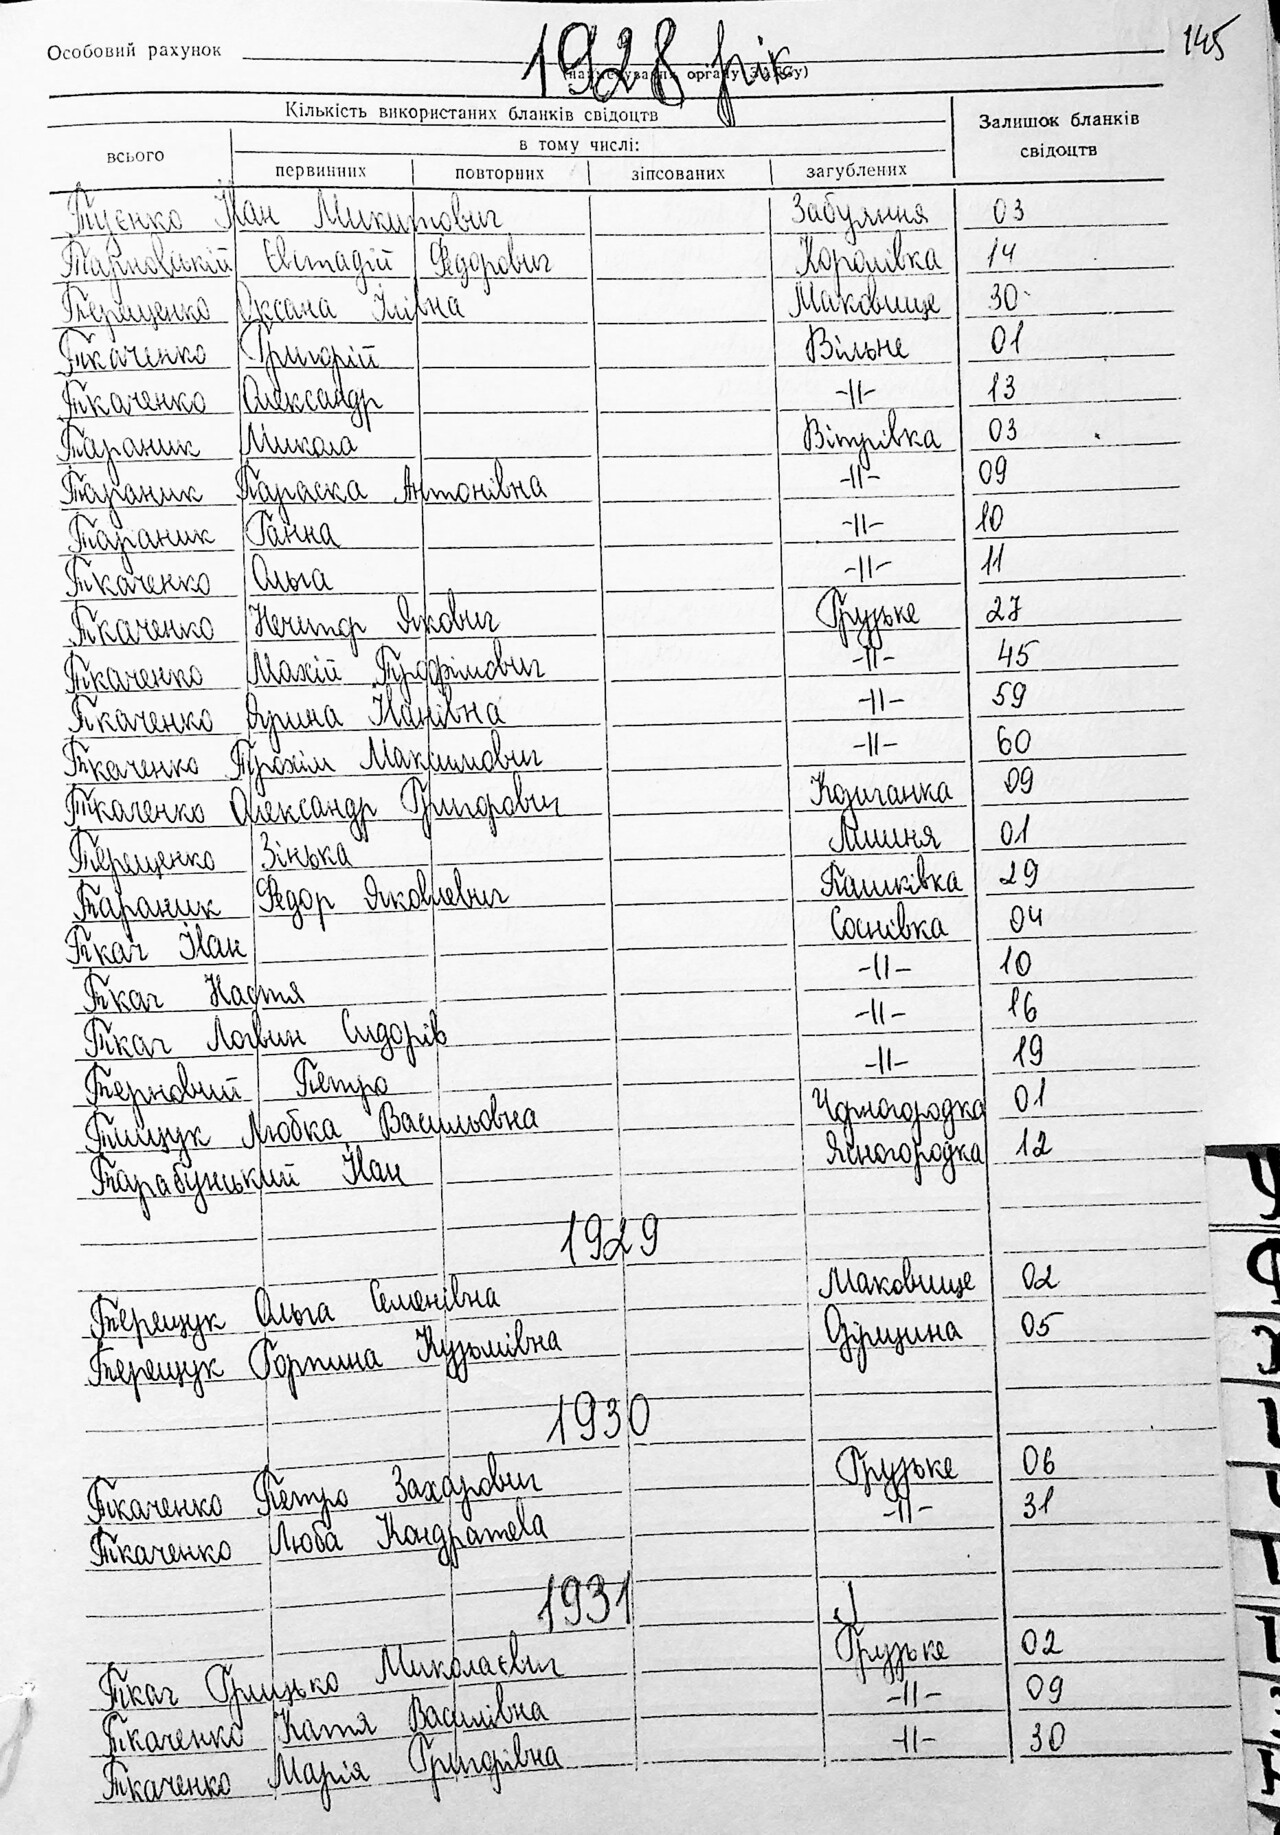 145
1928 рік
Особовий рахунок
(найменування органу ЗАГСу)
Кількість використаних бланків свідоцтв
Залишок бланків свідоцтв
всього
в тому числі:
первинних повторних зіпсованих загублених
Іван Микитович Забуяння 03
Тарновській Євстадій Федорович Королівка 14
Терещенко Оксана Ілівна Маковище 30
Ткаченко Григорій Вільне 01
Ткаченко Олександр -||- 13
Тараник Микола Вітрівка 03
Тараник Параска Антонівна -||- 09
Тараник Ганна -||- 10
Ткаченко Ольга -||- 11
Ткаченко Нечипор Якович Грузьке 27
Ткаченко Мокій Трофімович -||- 45
Ткаченко Ярина Іванівна -||- 59
Ткаченко Трохім Максимович -||- 60
Ткаченко Олександр Григорович Козичанка 09
Терещенко Зінька Лишня 01
Тараник Федор Яковлевич Пашківка 29
Ткач Іван Соснівка 04
Ткач Настя -||- 10
Ткач Логвин Сидорів -||- 16
Терновий Петро -||- 19
Тищук Любка Васильовна Чорногородка 01
Тарабунський Іван Ясногородка 12
1929
Терещук Ольга Семенівна Маковище 02
Терещук Горпина Кузьмівна 05
1930
Ткаченко Петро Захарович Грузьке 06
Ткаченко Люба Кондратева -||- 31
1931
Ткач Грицько Миколаєвич Грузьке 02
Ткаченко Катя Василівна -||- 09
Ткаченко Марія Григорівна -||- 30